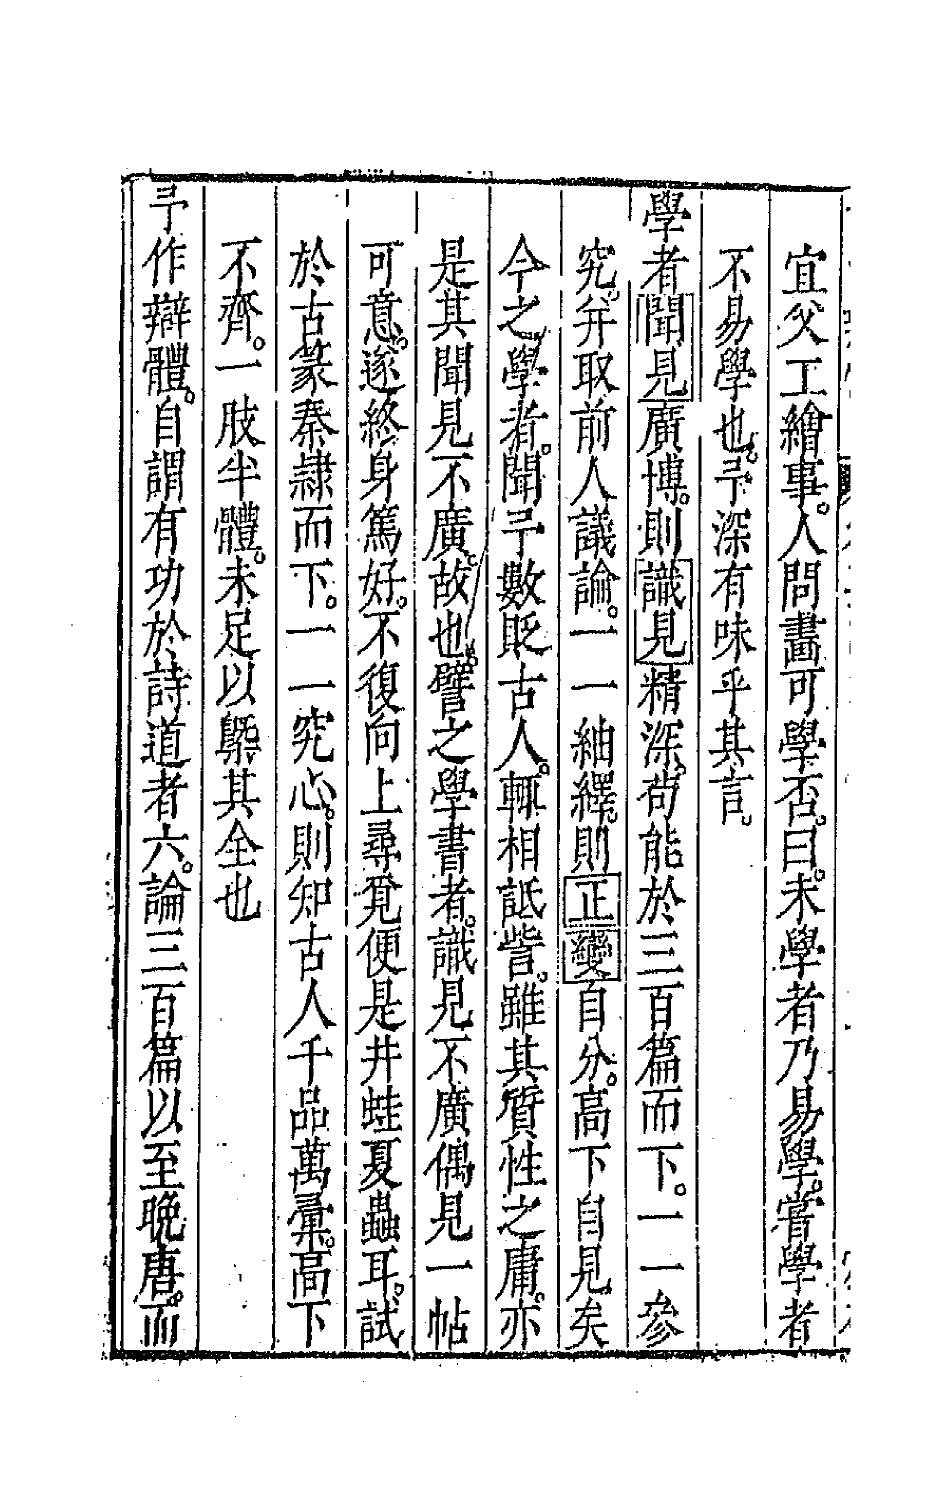 宜父工繪事。人問畫可學否。曰。未學者乃易學。嘗學者
不易學也。予深有味乎其言。
學者聞見廣博。則識見精深。苟能於三百篇而下。一一參
究。并取前人議論。一一紬繹。則正變自分。高下自見矣
今之學者。聞予數貶古人。輒相詆訾。雖其質性之庸。亦
是其聞見不廣故也。譬之學書者。識見不廣。偶見一帖
可意。遂終身篤好。不復向上尋覓。便是井蛙夏蟲耳。試
於古篆秦隷而下。一一究心。則知古人千品萬彙。高下
不齊。一肢半體。未足以槩其全也
予作辯體。自謂有功於詩道者六。論三百篇以至晚唐。而